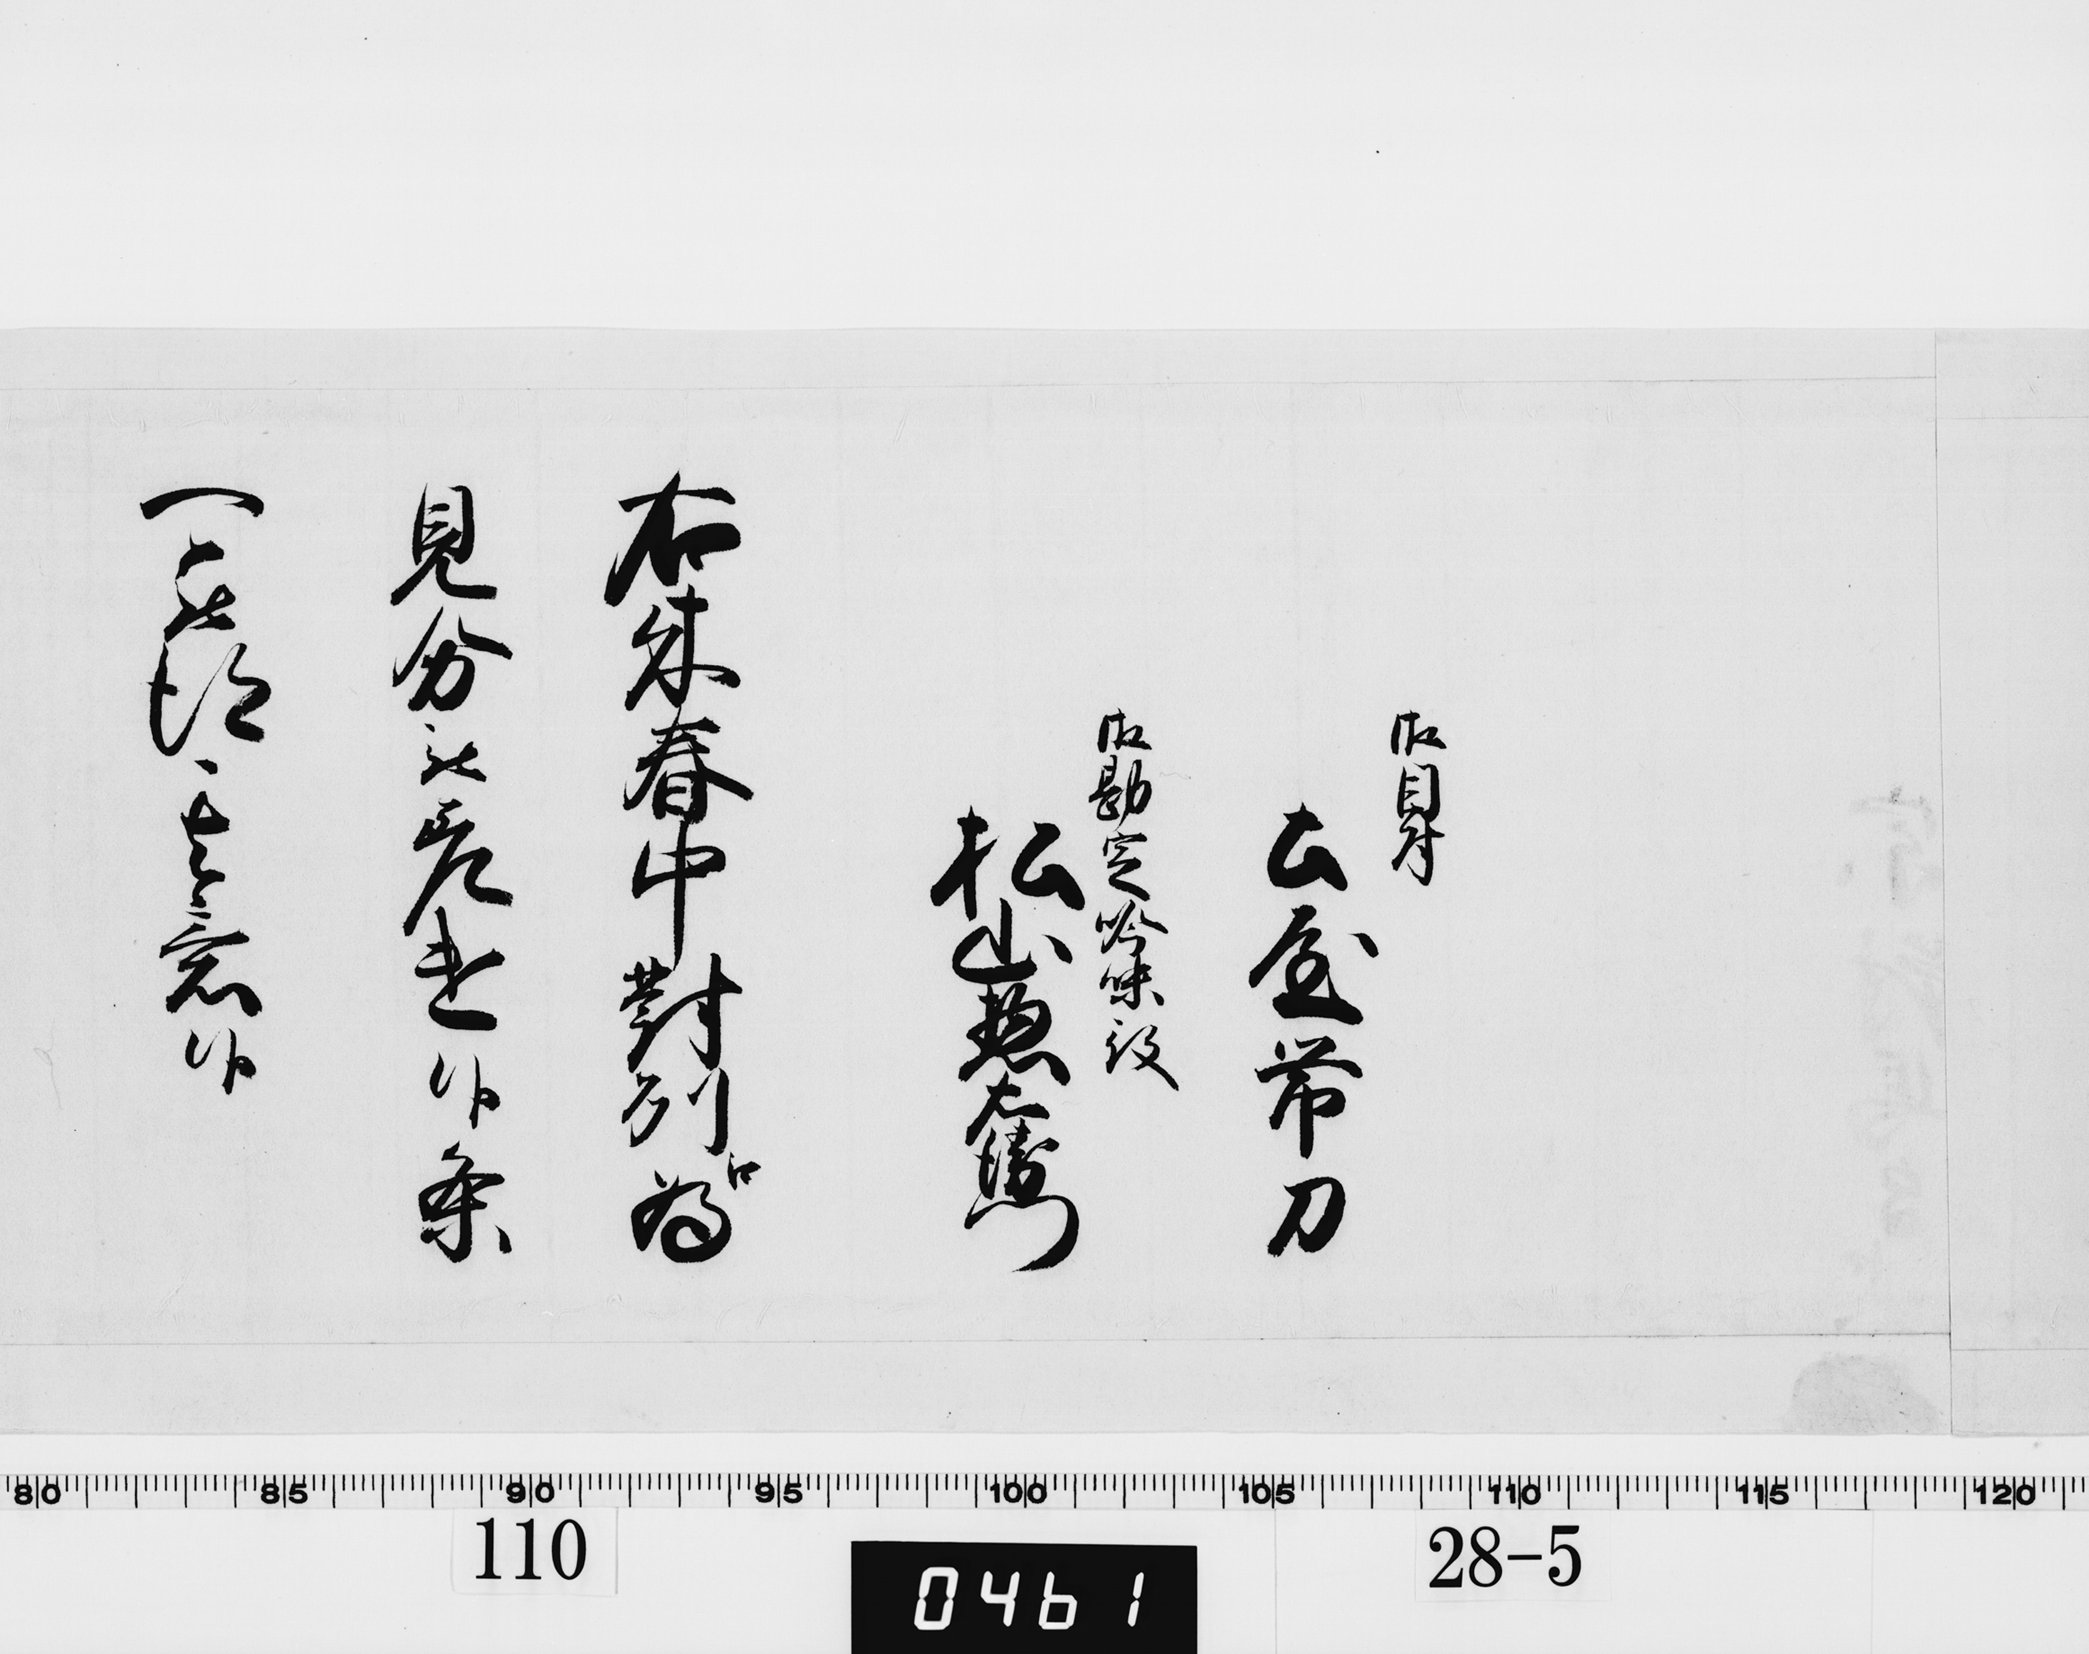 御目付
土屋帯刀
御勘定吟味役
松山惣右衛門
右来春中對州江為
見分被差遣候条
可被得其意候
80 85 90 95 100 105 110 115 120
110
0461
28-5